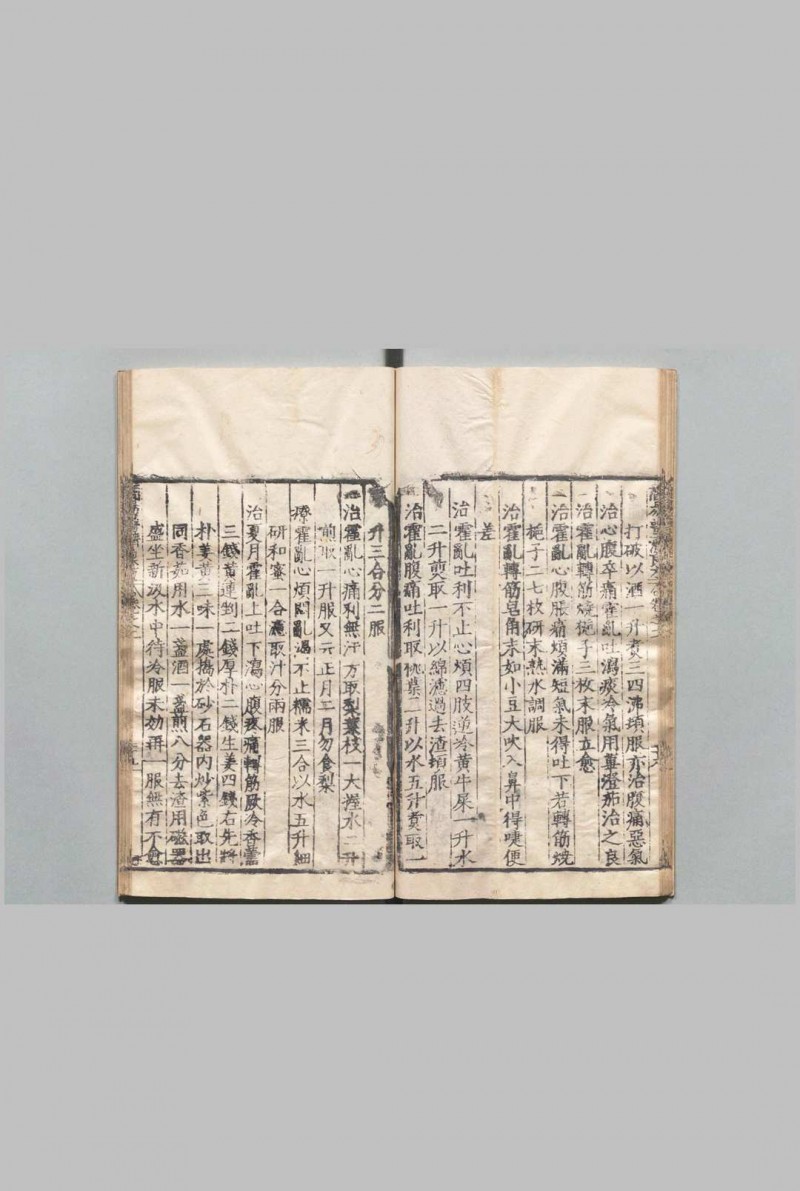 打破以酒一升煮三四沸頓服亦治腹痛惡氣
治心腹卒痛霍亂吐瀉痰冷氣用蓽澄茄治之良
治霍亂轉筋燒梔子三枚末服立愈
治霍亂心腹脹痛煩滿短氣未得吐下若轉筋燒
梔子二七枚研末熱水調服
治霍亂轉筋皂角末如小豆大吹入鼻中得啑便
差
治霍亂吐利不止心煩四肢逆冷黄牛屎一升水
二升煎取一升以綿濾過去渣頓服
治霍亂腹痛吐利取桃葉二升以水五升煮取一
升三合分二服
治霍亂心痛利無汗方取梨葉枝一大握水二升
煎取一升服又云正月二月勿食梨
療霍亂心煩悶亂渴不止糯米三合以水五升細
研和蜜一合濾取汁分兩服
治夏月霍亂上吐下瀉心腹疼痛轉筋厥冷香薷
三錢黄連到二錢厚朴二錢生姜四錢右先將
朴姜黄三味一處搗於砂石器内炒紫色取出
同香茹用水一盞酒一盞煎八分去渣用磁器
盛坐新汲水中待冷服未効再一服無有不愈